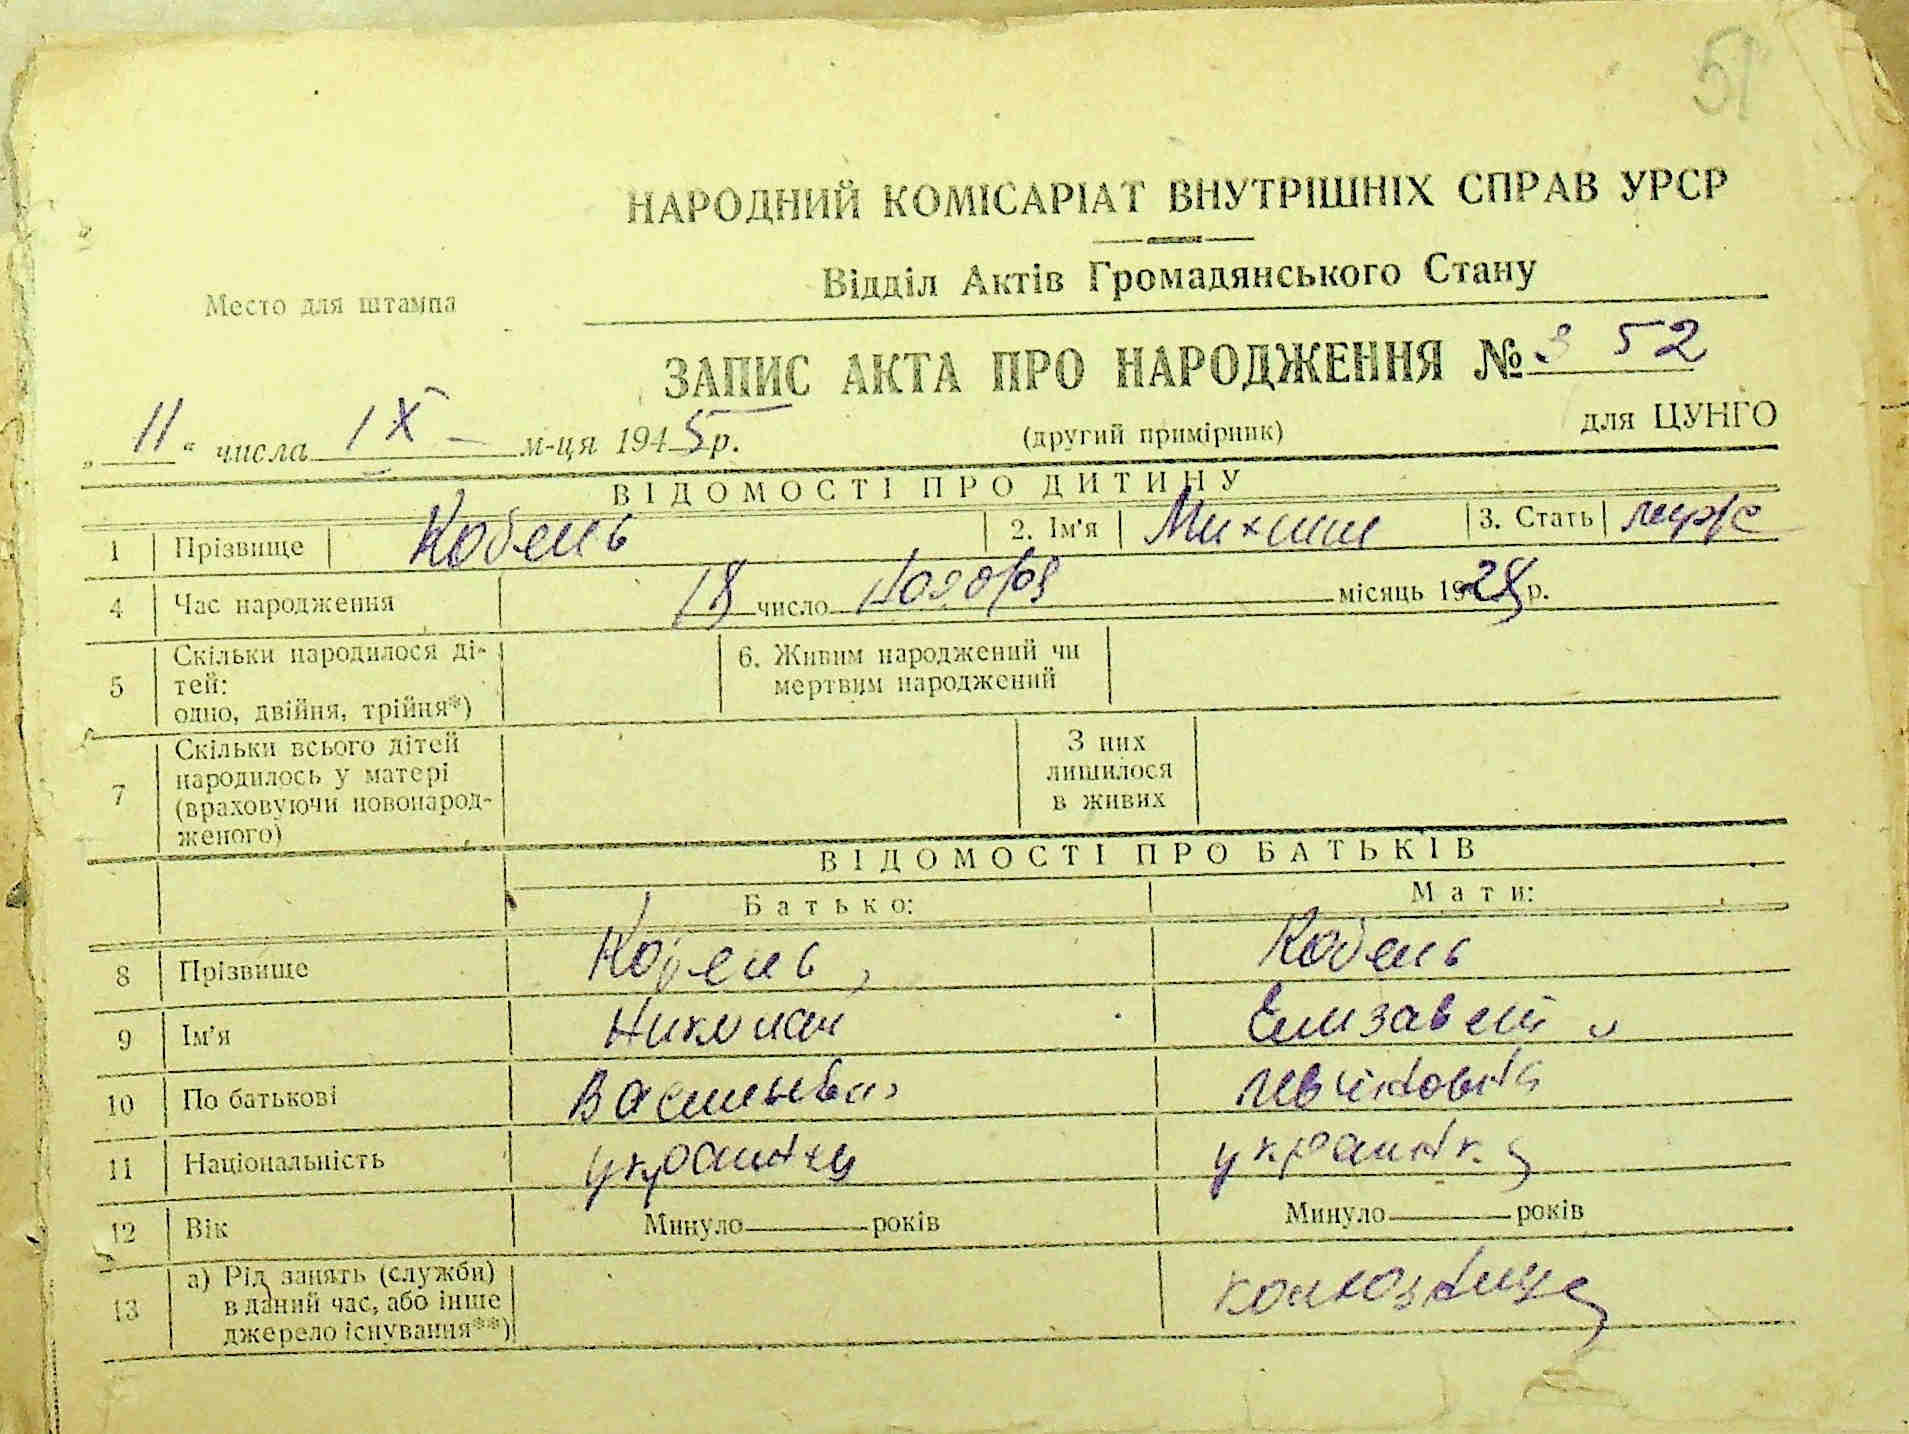 51
НАРОДНИЙ КОМІСАРІАТ ВНУТРІШНІХ СПРАВ УРСР
Відділ Актів Громадянського Стану
Место для штампа
ЗАПИС АКТА ПРО НАРОДЖЕННЯ № 352
„11“ числа IX м-ця 1945 р. (другий примірник) для ЦУНГО
ВІДОМОСТІ ПРО ДИТИНУ
1 Прізвище Кобень 2. Ім'я 3. Стать муж
4 Час народження 18 число ноября місяць 1928 р.
5 Скільки народилося ді-
тей:
одно, двійня, трійня*)
6. Живим народжений чи
мертвим народжений
7 Скільки всього дітей
народилось у матері
(враховуючи новонарод-
женого)
З них
лишилося
в живих
ВІДОМОСТІ ПРО БАТЬКІВ
Батько: Мати:
8 Прізвище Кобень Кобень
9 Ім'я Николай
10 По батькові
11 Національність украинец украинка
12 Вік Минуло років Минуло років
13 а) Рід занять (служби)
в даний час, або інше
джерело існування**)
колхозница